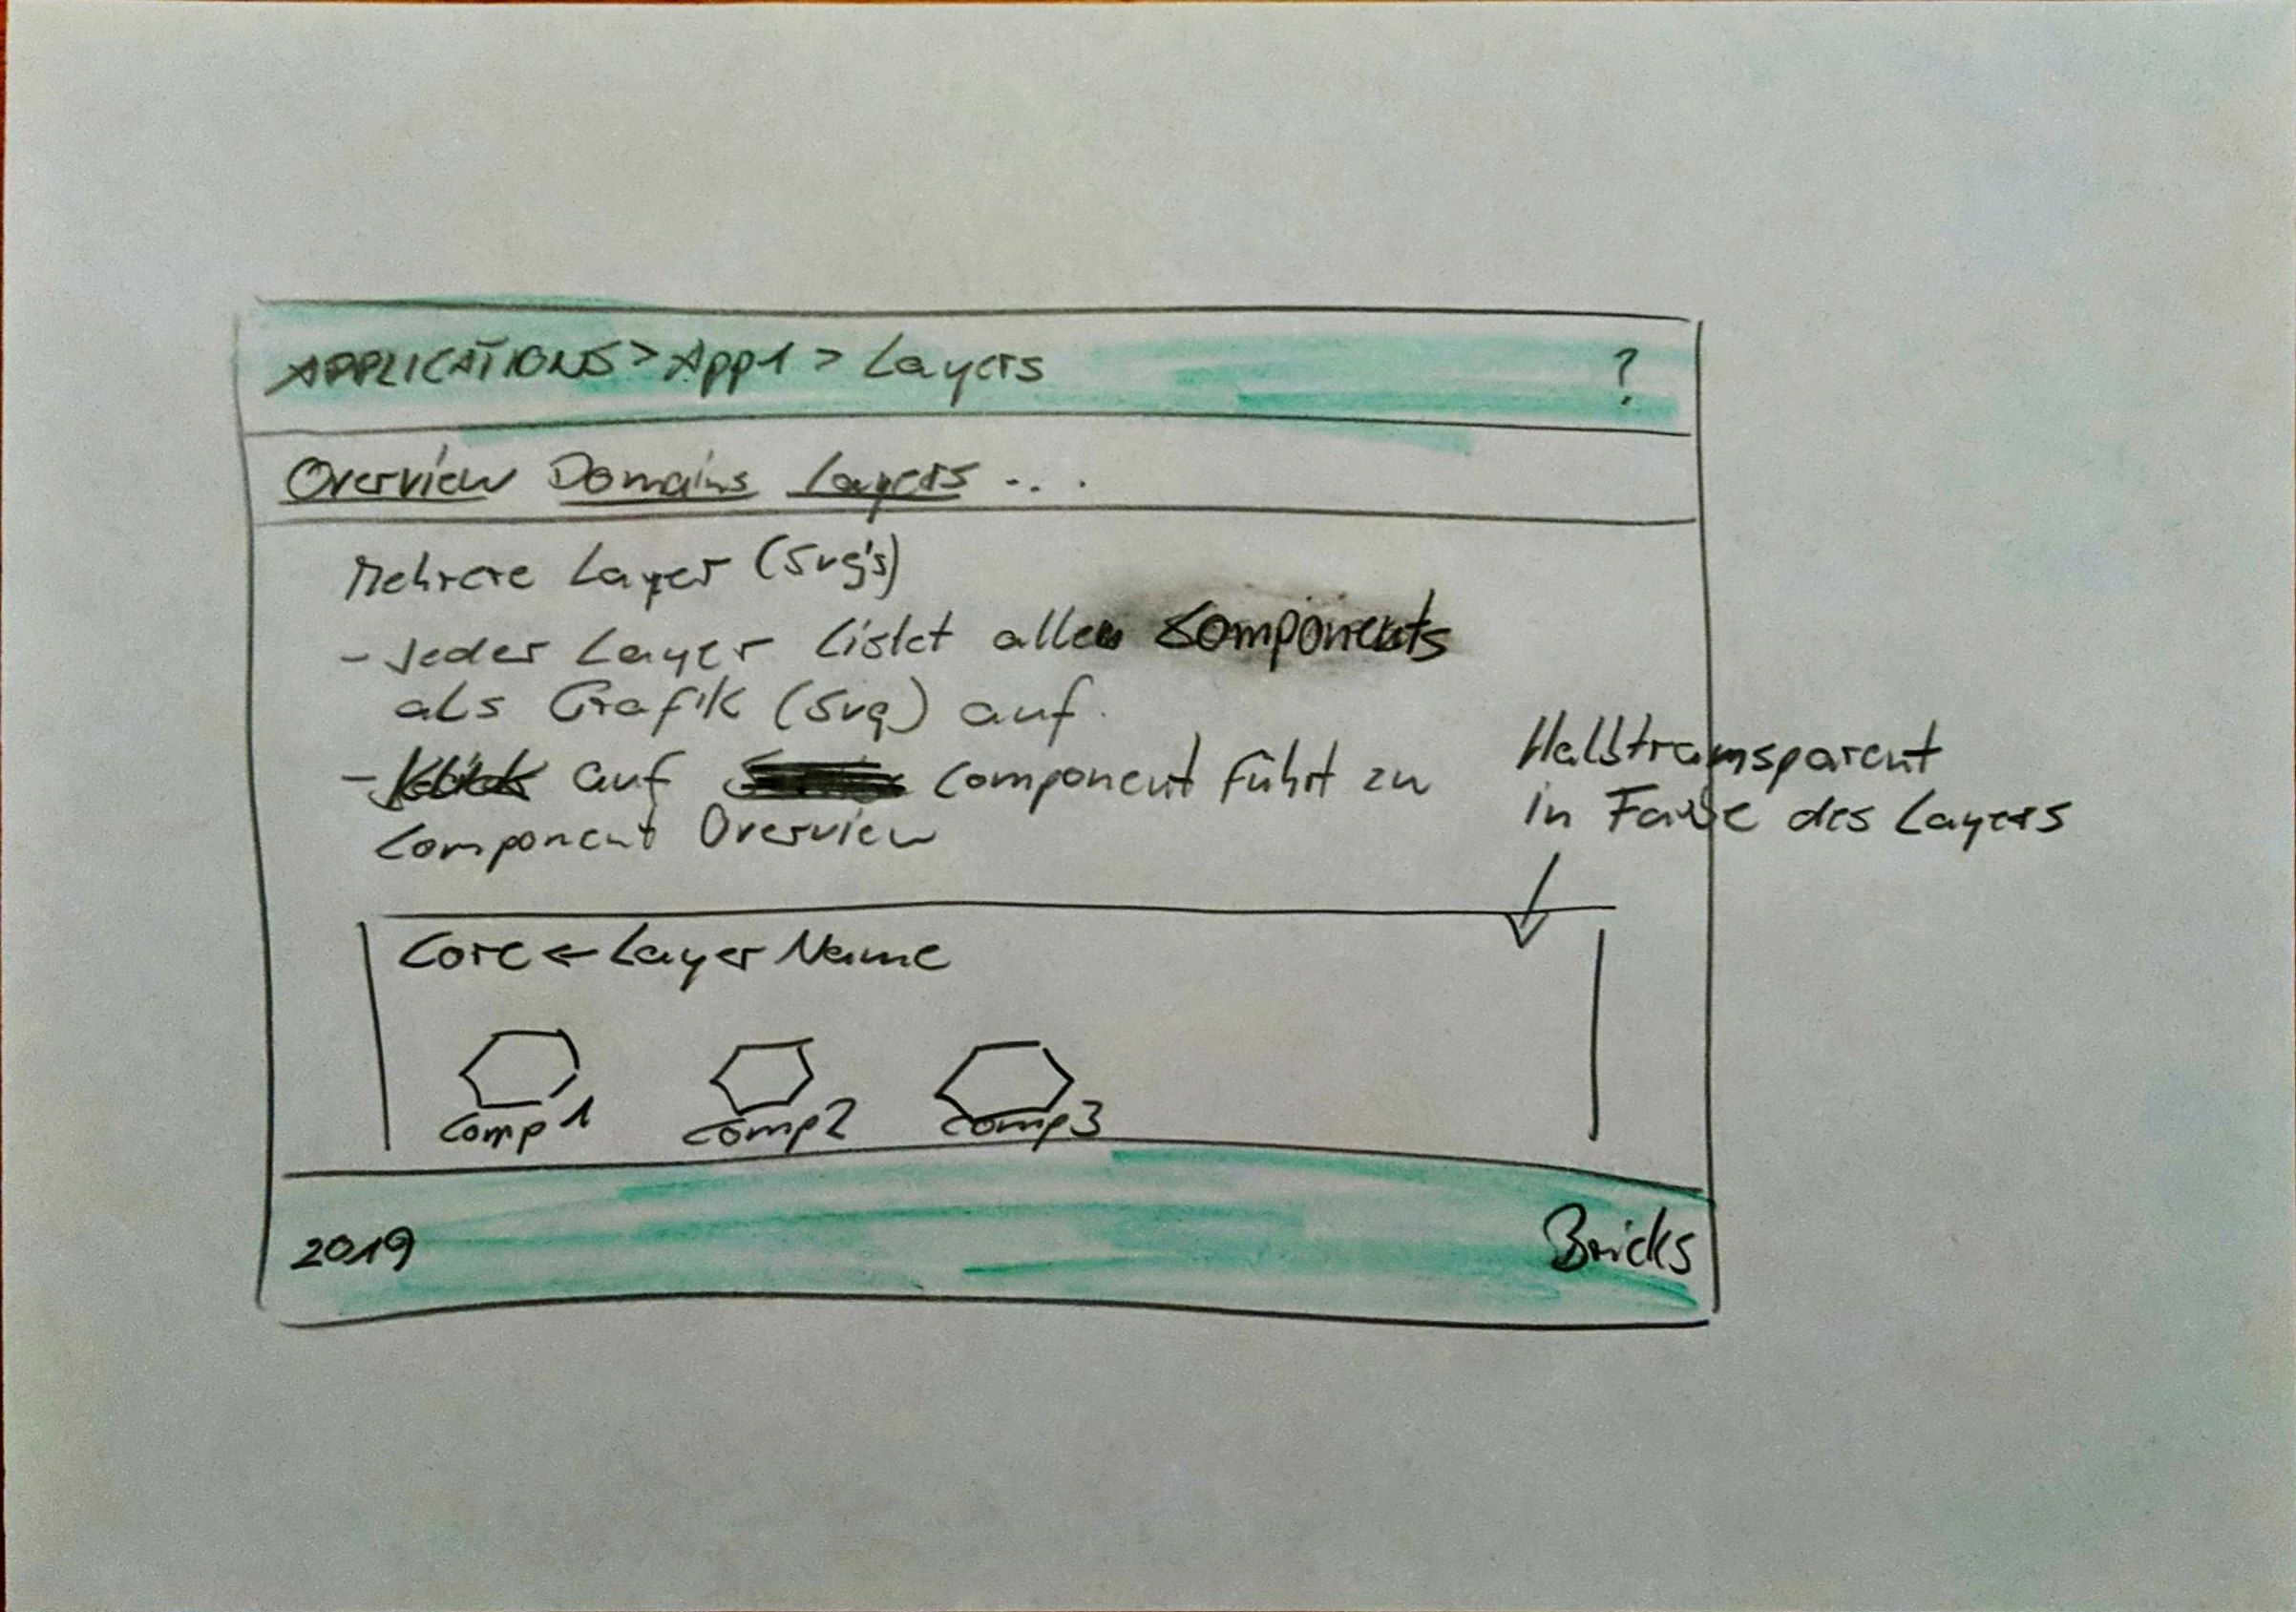 APPLICATIONS > App1 > Layers ?
Overview Domains Layers ...
Mehrere Layer (Svg's)
- Jeder Layer listet alle Components
als Grafik (Svg) auf.
- Klick auf Component führt zu
Component Overview
Halbtransparent
in Farbe des Layers
Core ← Layer Name
Comp1 Comp2 Comp3
2019 Bricks